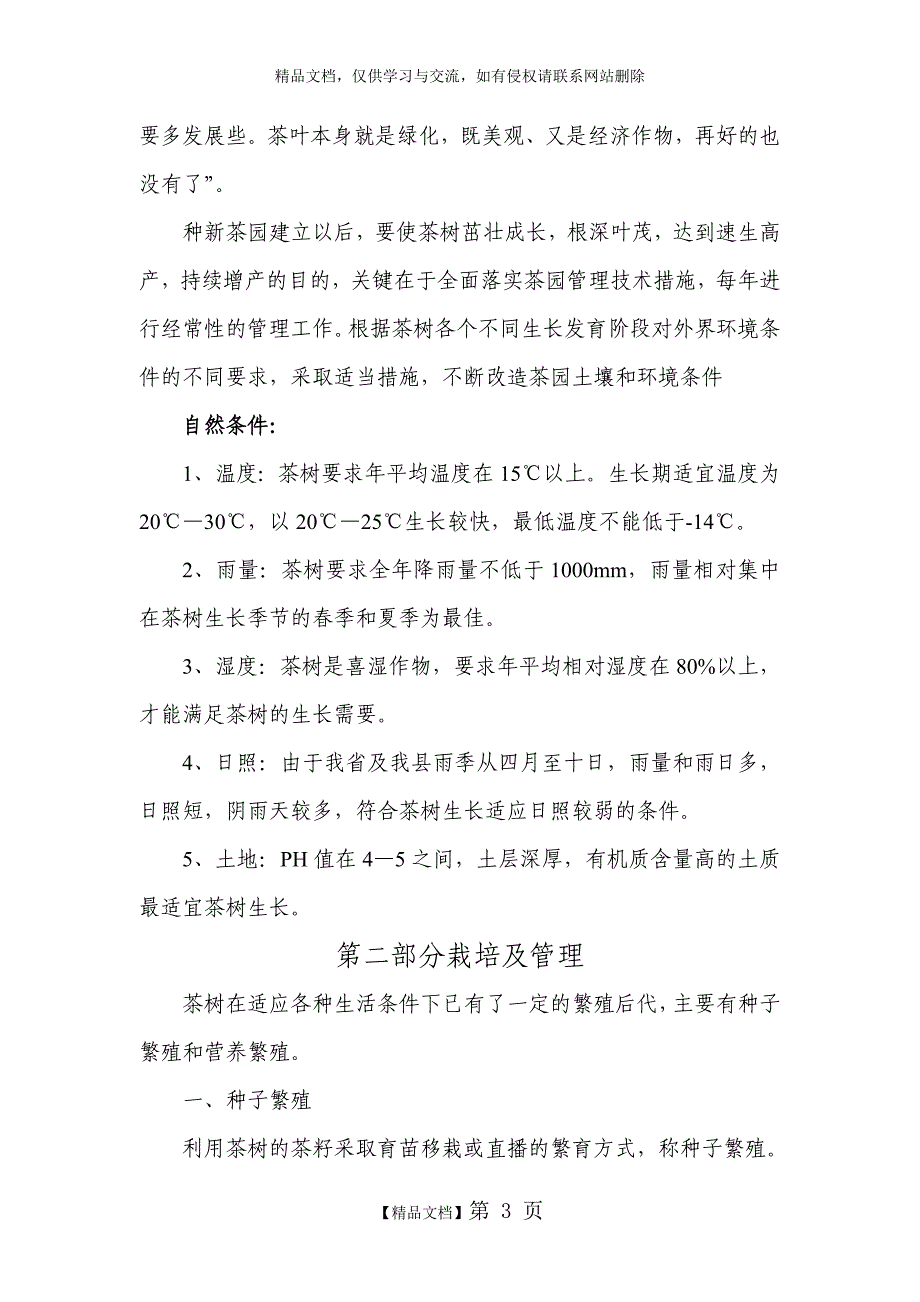 精品文档，仅供学习与交流，如有侵权请联系网站删除
要多发展些。茶叶本身就是绿化，既美观、又是经济作物，再好的也
没有了”。
种新茶园建立以后，要使茶树茁壮成长，根深叶茂，达到速生高
产，持续增产的目的，关键在于全面落实茶园管理技术措施，每年进
行经常性的管理工作。根据茶树各个不同生长发育阶段对外界环境条
件的不同要求，采取适当措施，不断改造茶园土壤和环境条件
自然条件：
1、温度：茶树要求年平均温度在 15℃以上。生长期适宜温度为
20℃—30℃，以 20℃—25℃生长较快，最低温度不能低于-14℃。
2、雨量：茶树要求全年降雨量不低于 1000mm，雨量相对集中
在茶树生长季节的春季和夏季为最佳。
3、湿度：茶树是喜湿作物，要求年平均相对湿度在 80%以上，
才能满足茶树的生长需要。
4、日照：由于我省及我县雨季从四月至十日，雨量和雨日多，
日照短，阴雨天较多，符合茶树生长适应日照较弱的条件。
5、土地：PH 值在 4—5 之间，土层深厚，有机质含量高的土质
最适宜茶树生长。
第二部分栽培及管理
茶树在适应各种生活条件下已有了一定的繁殖后代，主要有种子
繁殖和营养繁殖。
一、种子繁殖
利用茶树的茶籽采取育苗移栽或直播的繁育方式，称种子繁殖。
【精品文档】第 3 页